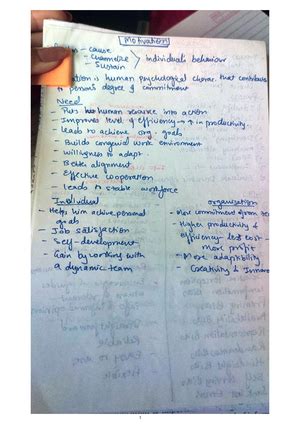 Motivation
- cause
- channelize
- sustain
Individual's behaviour
is human psychological charac. that contributes
to person's degree of commitment
Need
- Puts human resource into action
- Improves level of efficiency → ↑ in productivity
- leads to achieve org. goals
- Builds congenial work environment
- Willingness to adapt
- Better alignment
- Effective cooperation
- leads to stable workforce
Individual
- Helps him achive personal
goals
- Job satisfaction
- Self-development
- Gain by working with
a dynamic team
organization
- More commitment from
- Higher productivity &
efficiency - less cost
more profit
- More adaptibility
- Creativity &
1